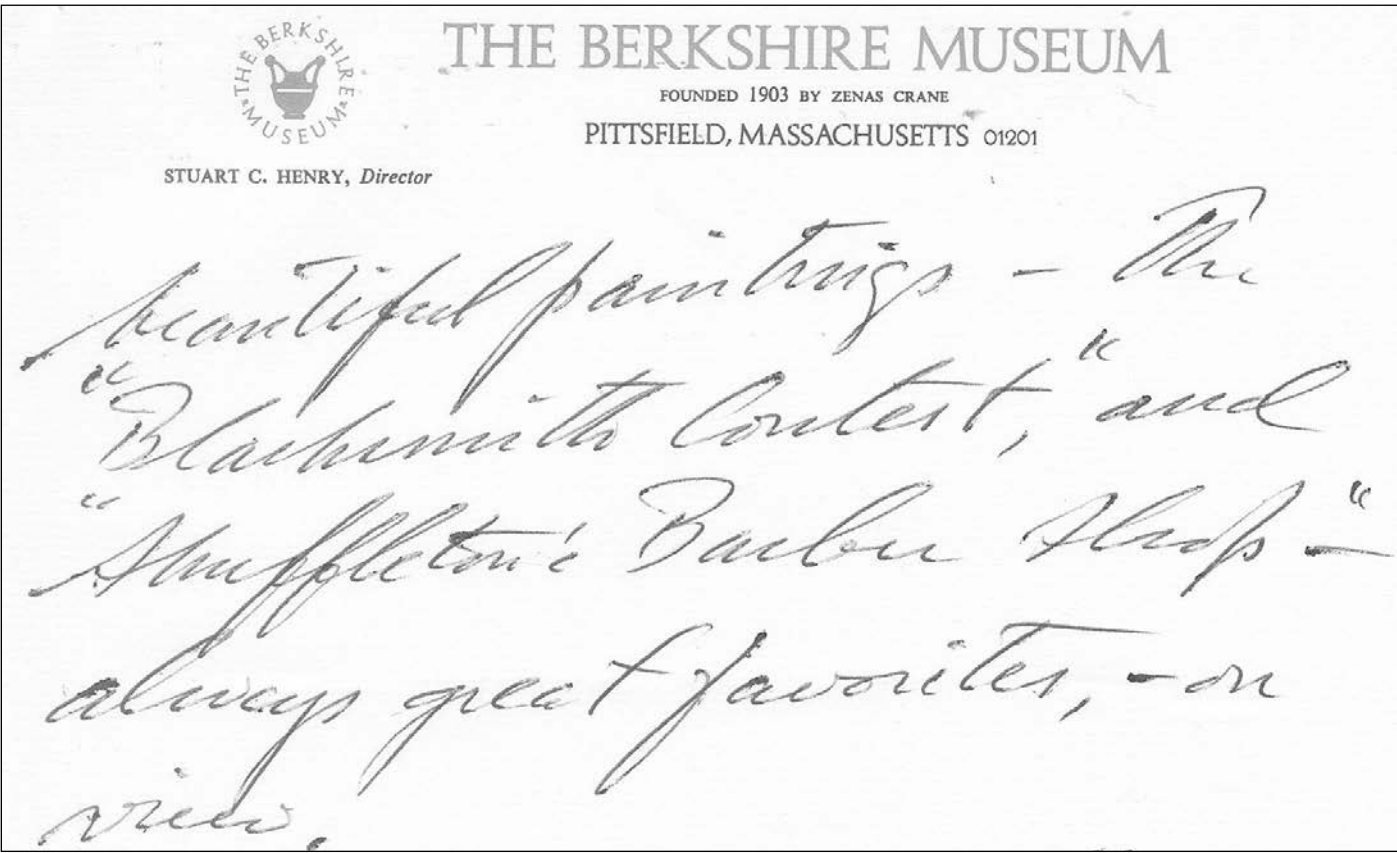 THE BERKSHIRE MUSEUM
THE BERKSHIRE MUSEUM
FOUNDED 1903 BY ZENAS CRANE
PITTSFIELD, MASSACHUSETTS 01201
STUART C. HENRY, Director
beautiful paintings – The
"Blacksmith Contest," and
"Shuffleton's Barber Shop –"
always great favorites, – on
view.